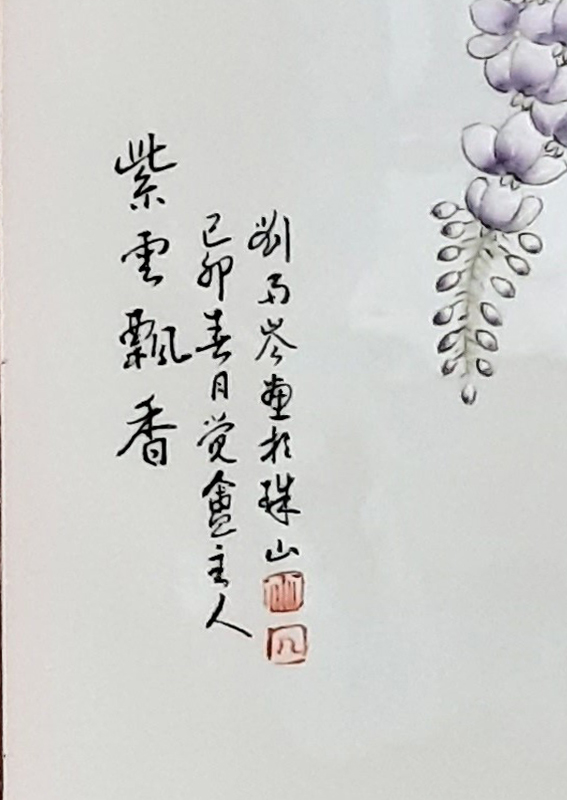 紫雲飄香
己卯春月觉盦主人
劉雨岑画於珠山